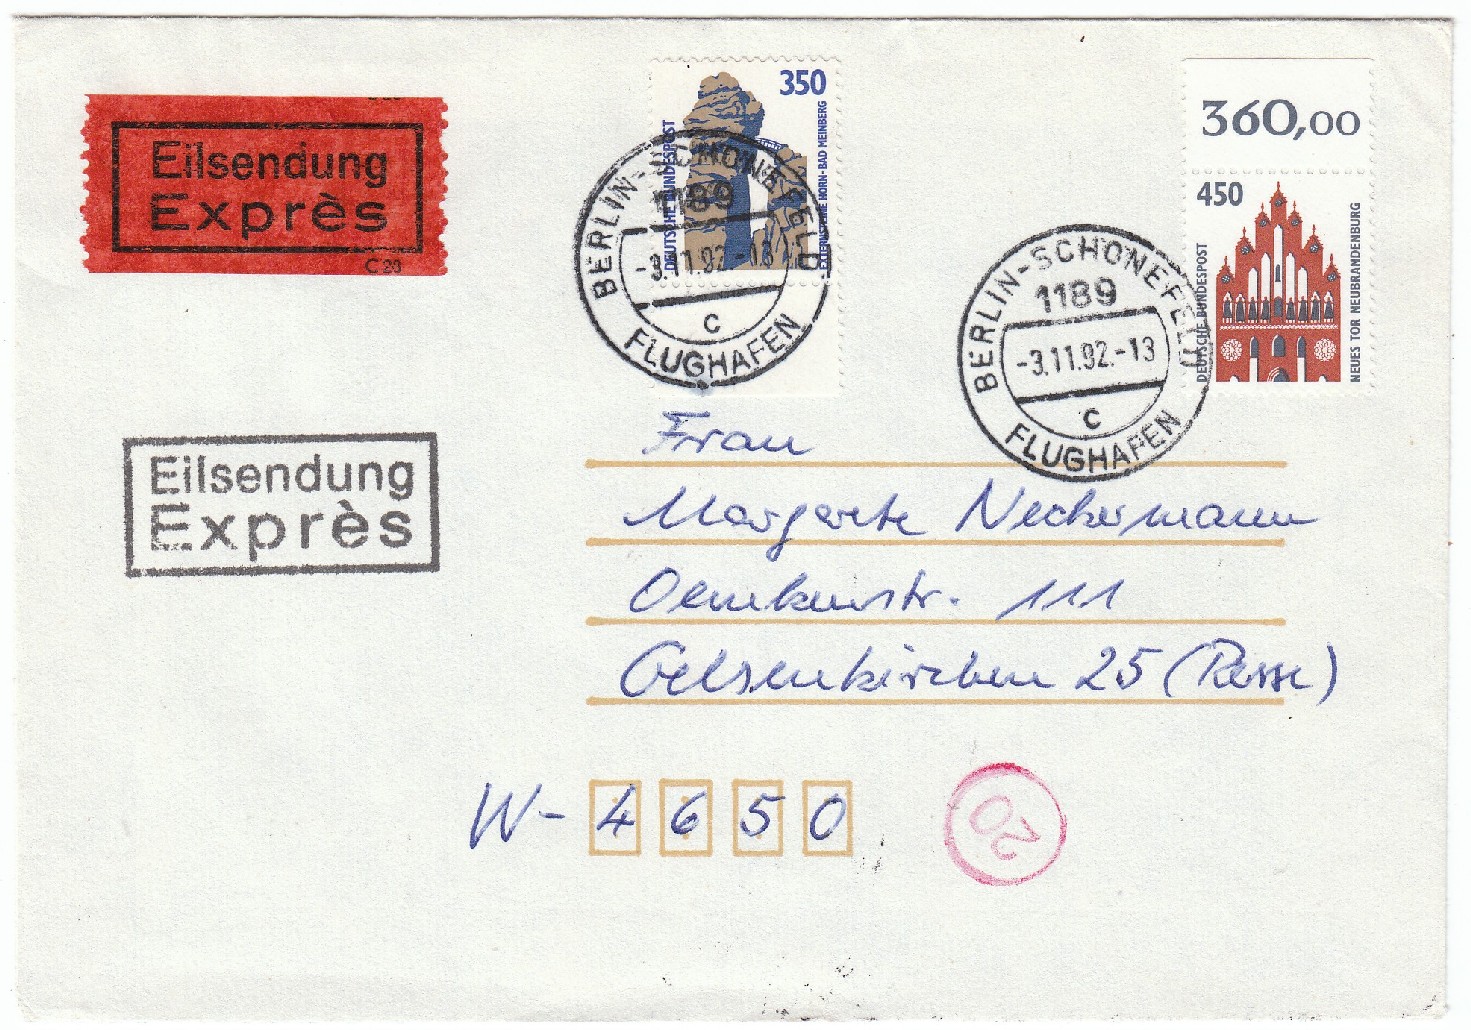 Eilsendung
Exprès
C 20
350
DEUTSCHE BUNDESPOST
EXTERNSTEINE HORN-BAD MEINBERG
BERLIN-SCHÖNEFELD
1189
-3.11.92.-13
c
FLUGHAFEN
360,00
450
DEUTSCHE BUNDESPOST
NEUES TOR NEUBRANDENBURG
BERLIN-SCHÖNEFELD
1189
-3.11.92.-13
c
FLUGHAFEN
Eilsendung
Exprès
Frau
Margarete Neckermann
111
Gelsenkirchen 25 (Resse)
W-4650
20